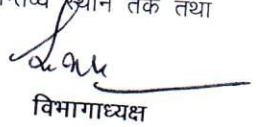 स्थान तक तथा
विभागाध्यक्ष